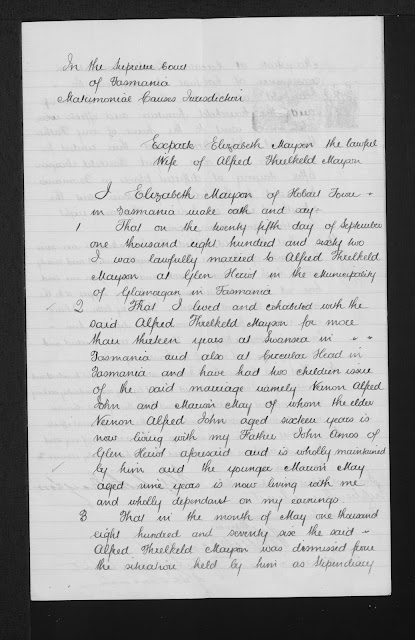 In the Supreme Court
of Tasmania
Matrimonial Causes Jurisdiction
Exparte Elizabeth Mayson the lawful
Wife of Alfred Threlkeld Mayson
I Elizabeth Mayson of Hobart Town
in Tasmania make oath and say.
1 That on the twenty fifth day of September
one thousand eight hundred and sixty two
I was lawfully married to Alfred Threlkeld
Mayson at Glen Heriot in the Municipality
of Glamorgan in Tasmania
2 That I lived and cohabited with the
said Alfred Threlkeld Mayson for more
than thirteen years at Swansea in
Tasmania and also at Circular Head in
Tasmania and have had two children issue
of the said marriage namely Vernon Alfred
John and Marion May of whom the elder
Vernon Alfred John aged sixteen years is
now living with my Father John Amos of
Glen Heriot aforesaid and is wholly maintained
by him and the younger Marion May
aged nine years is now living with me
and wholly dependant on my earnings
3 That in the month of May one thousand
eight hundred and seventy six the said
Alfred Threlkeld Mayson was dismissed from
the situation held by him as Stipendiary